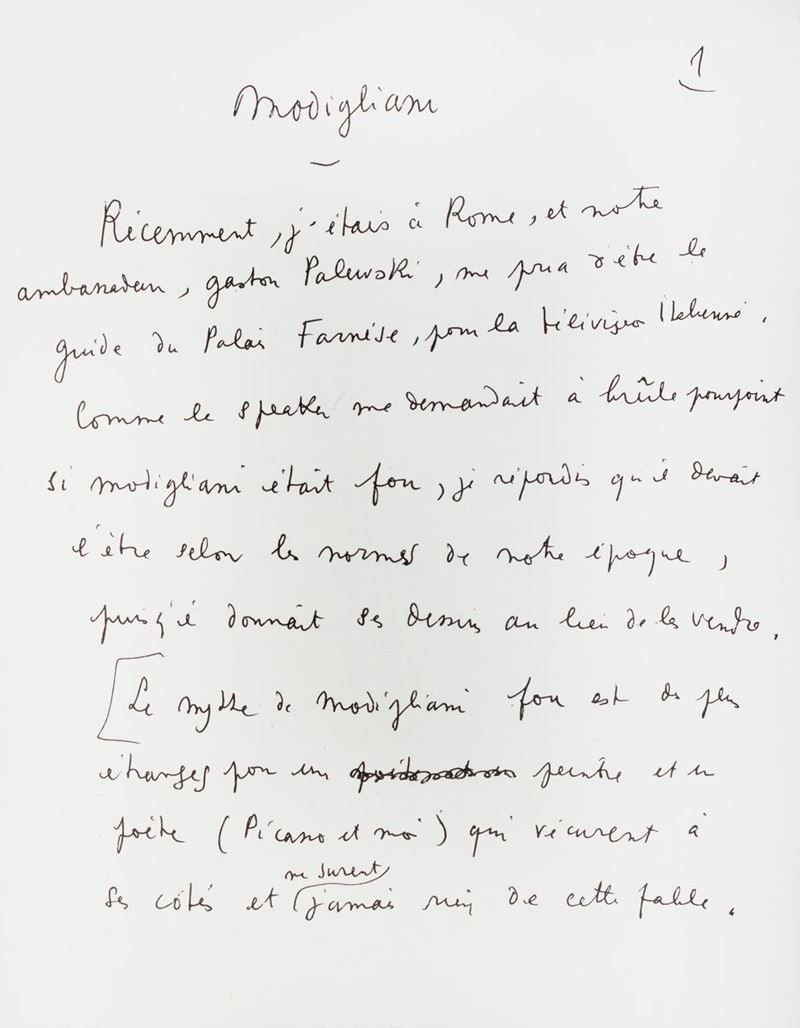 1
Modigliani
Récemment, j'étais à Rome, et notre
ambassadeur, gaston Palewski, me pria d'être le
guide du Palais Farnèse, pour la télévision Italienne.
Comme le speaker me demandait à brûle pourpoint
si modigliani était fou, je répondis qu'il devait
l'être selon les normes de notre époque,
puisqu'il donnait ses dessins au lieu de les vendre.
[Le mythe de modigliani fou est des plus
étranges pour un peintre et un
poète (Picasso et moi) qui vécurent à
ne surent
ses côtés et jamais rien de cette fable.